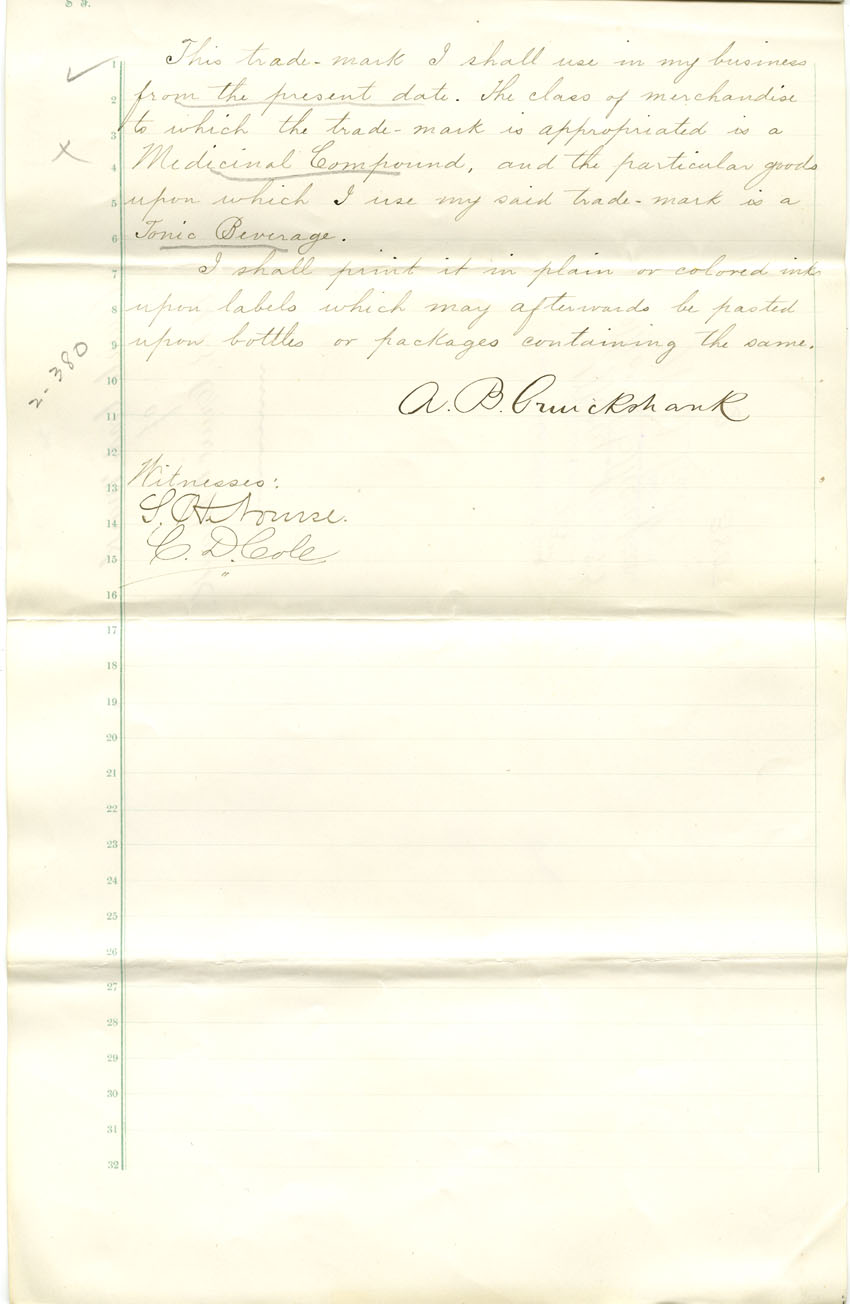 This trade-mark I shall use in my business
from the present date. The class of merchandise
to which the trade-mark is appropriated is a
Medicinal Compound, and the particular goods
upon which I use my said trade-mark is a
Tonic Beverage.
I shall print it in plain or colored ink
upon labels which may afterwards be pasted
upon bottles or packages containing the same.
A. B. Cruickshank
Witnesses:
S. H. Nourse.
C. D. Cole
2-380
1
2
3
4
5
6
7
8
9
10
11
12
13
14
15
16
17
18
19
20
21
22
23
24
25
26
27
28
29
30
31
32